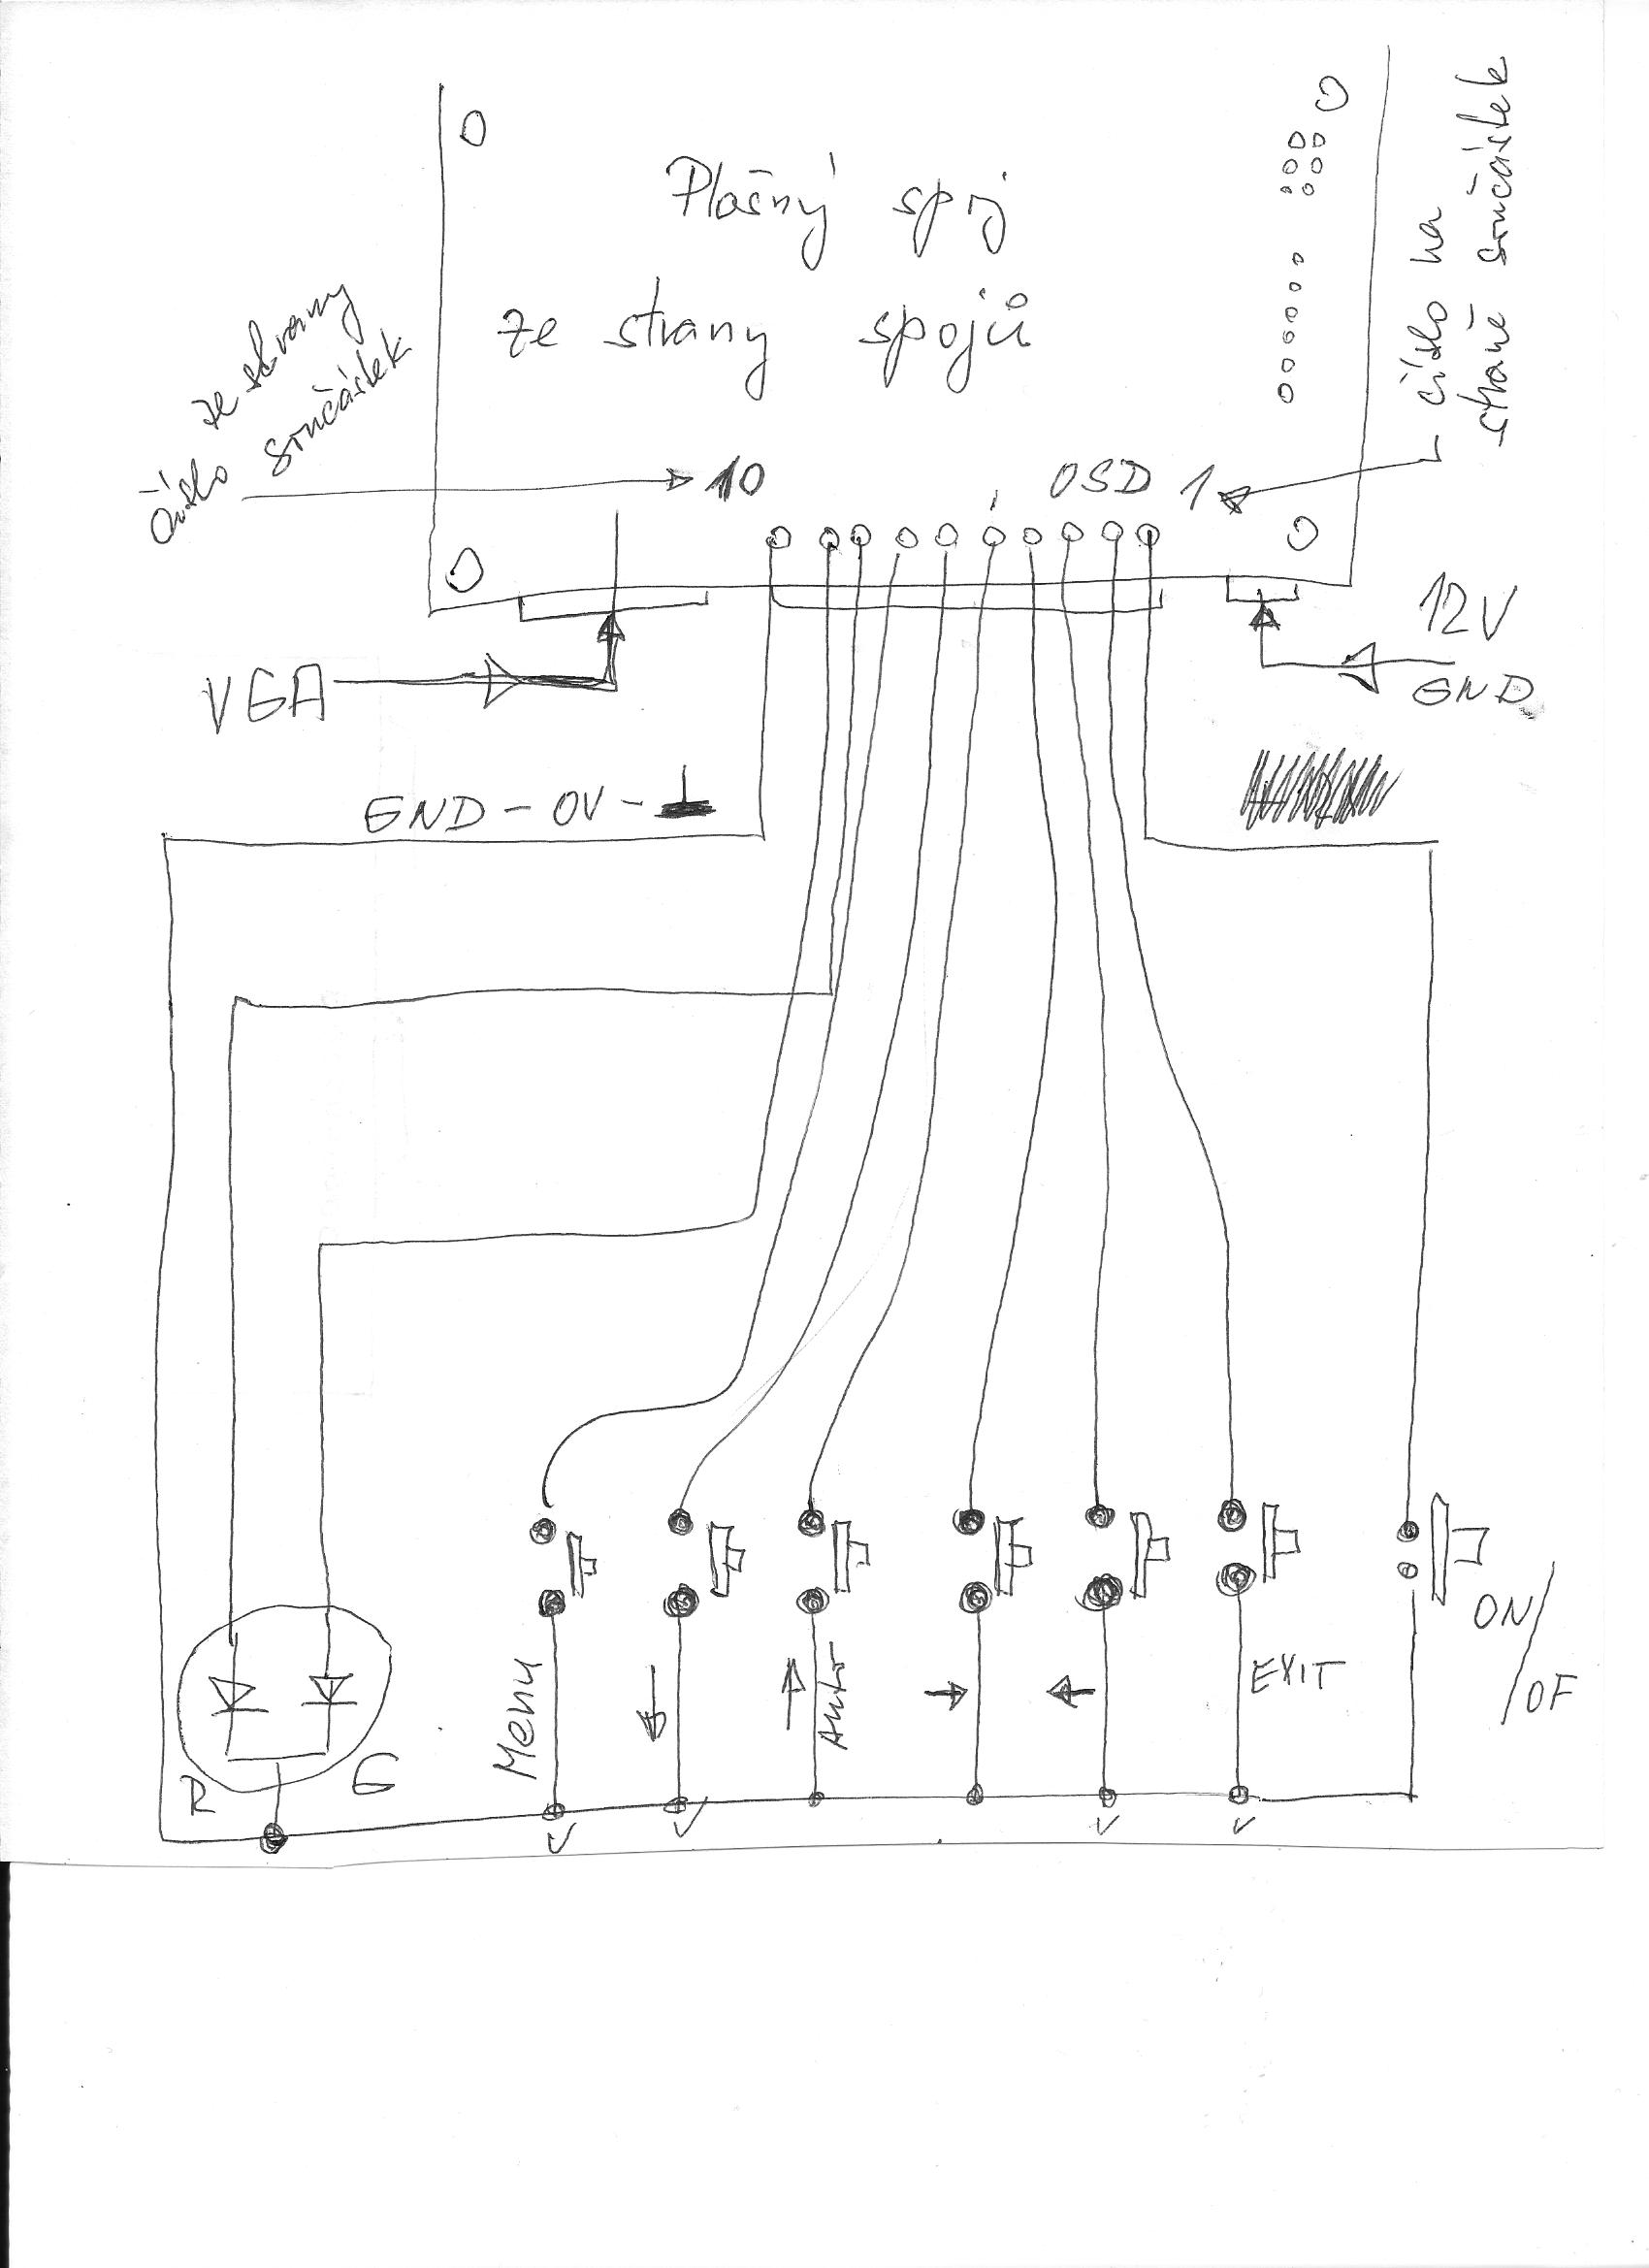 Plošný spoj
ze strany spojů
Číslo ze strany
součástek
číslo na
straně součástek
10
OSD 1
12V
GND
VGA
GND - 0V -
R
G
Menu
↓
↑
Auto
→
←
EXIT
ON/OF